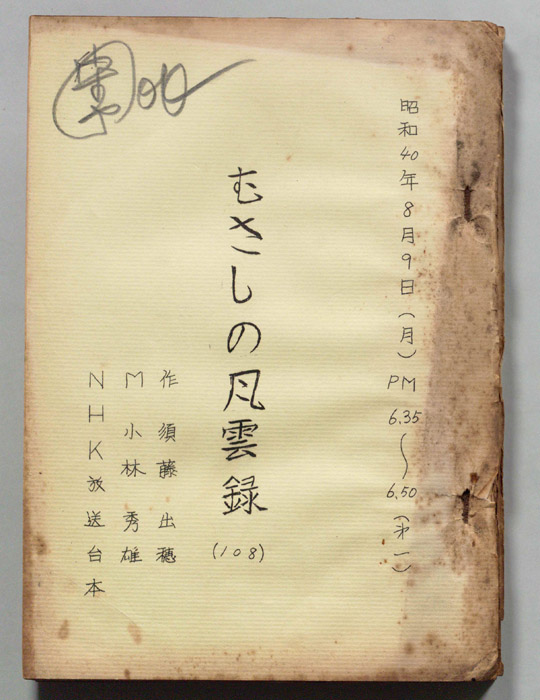 昭和40年8月9日(月)PM6.35〜6.50(第一)
むさしの風雲録
(108)
作 須藤出穂
M 小林秀雄
NHK放送台本